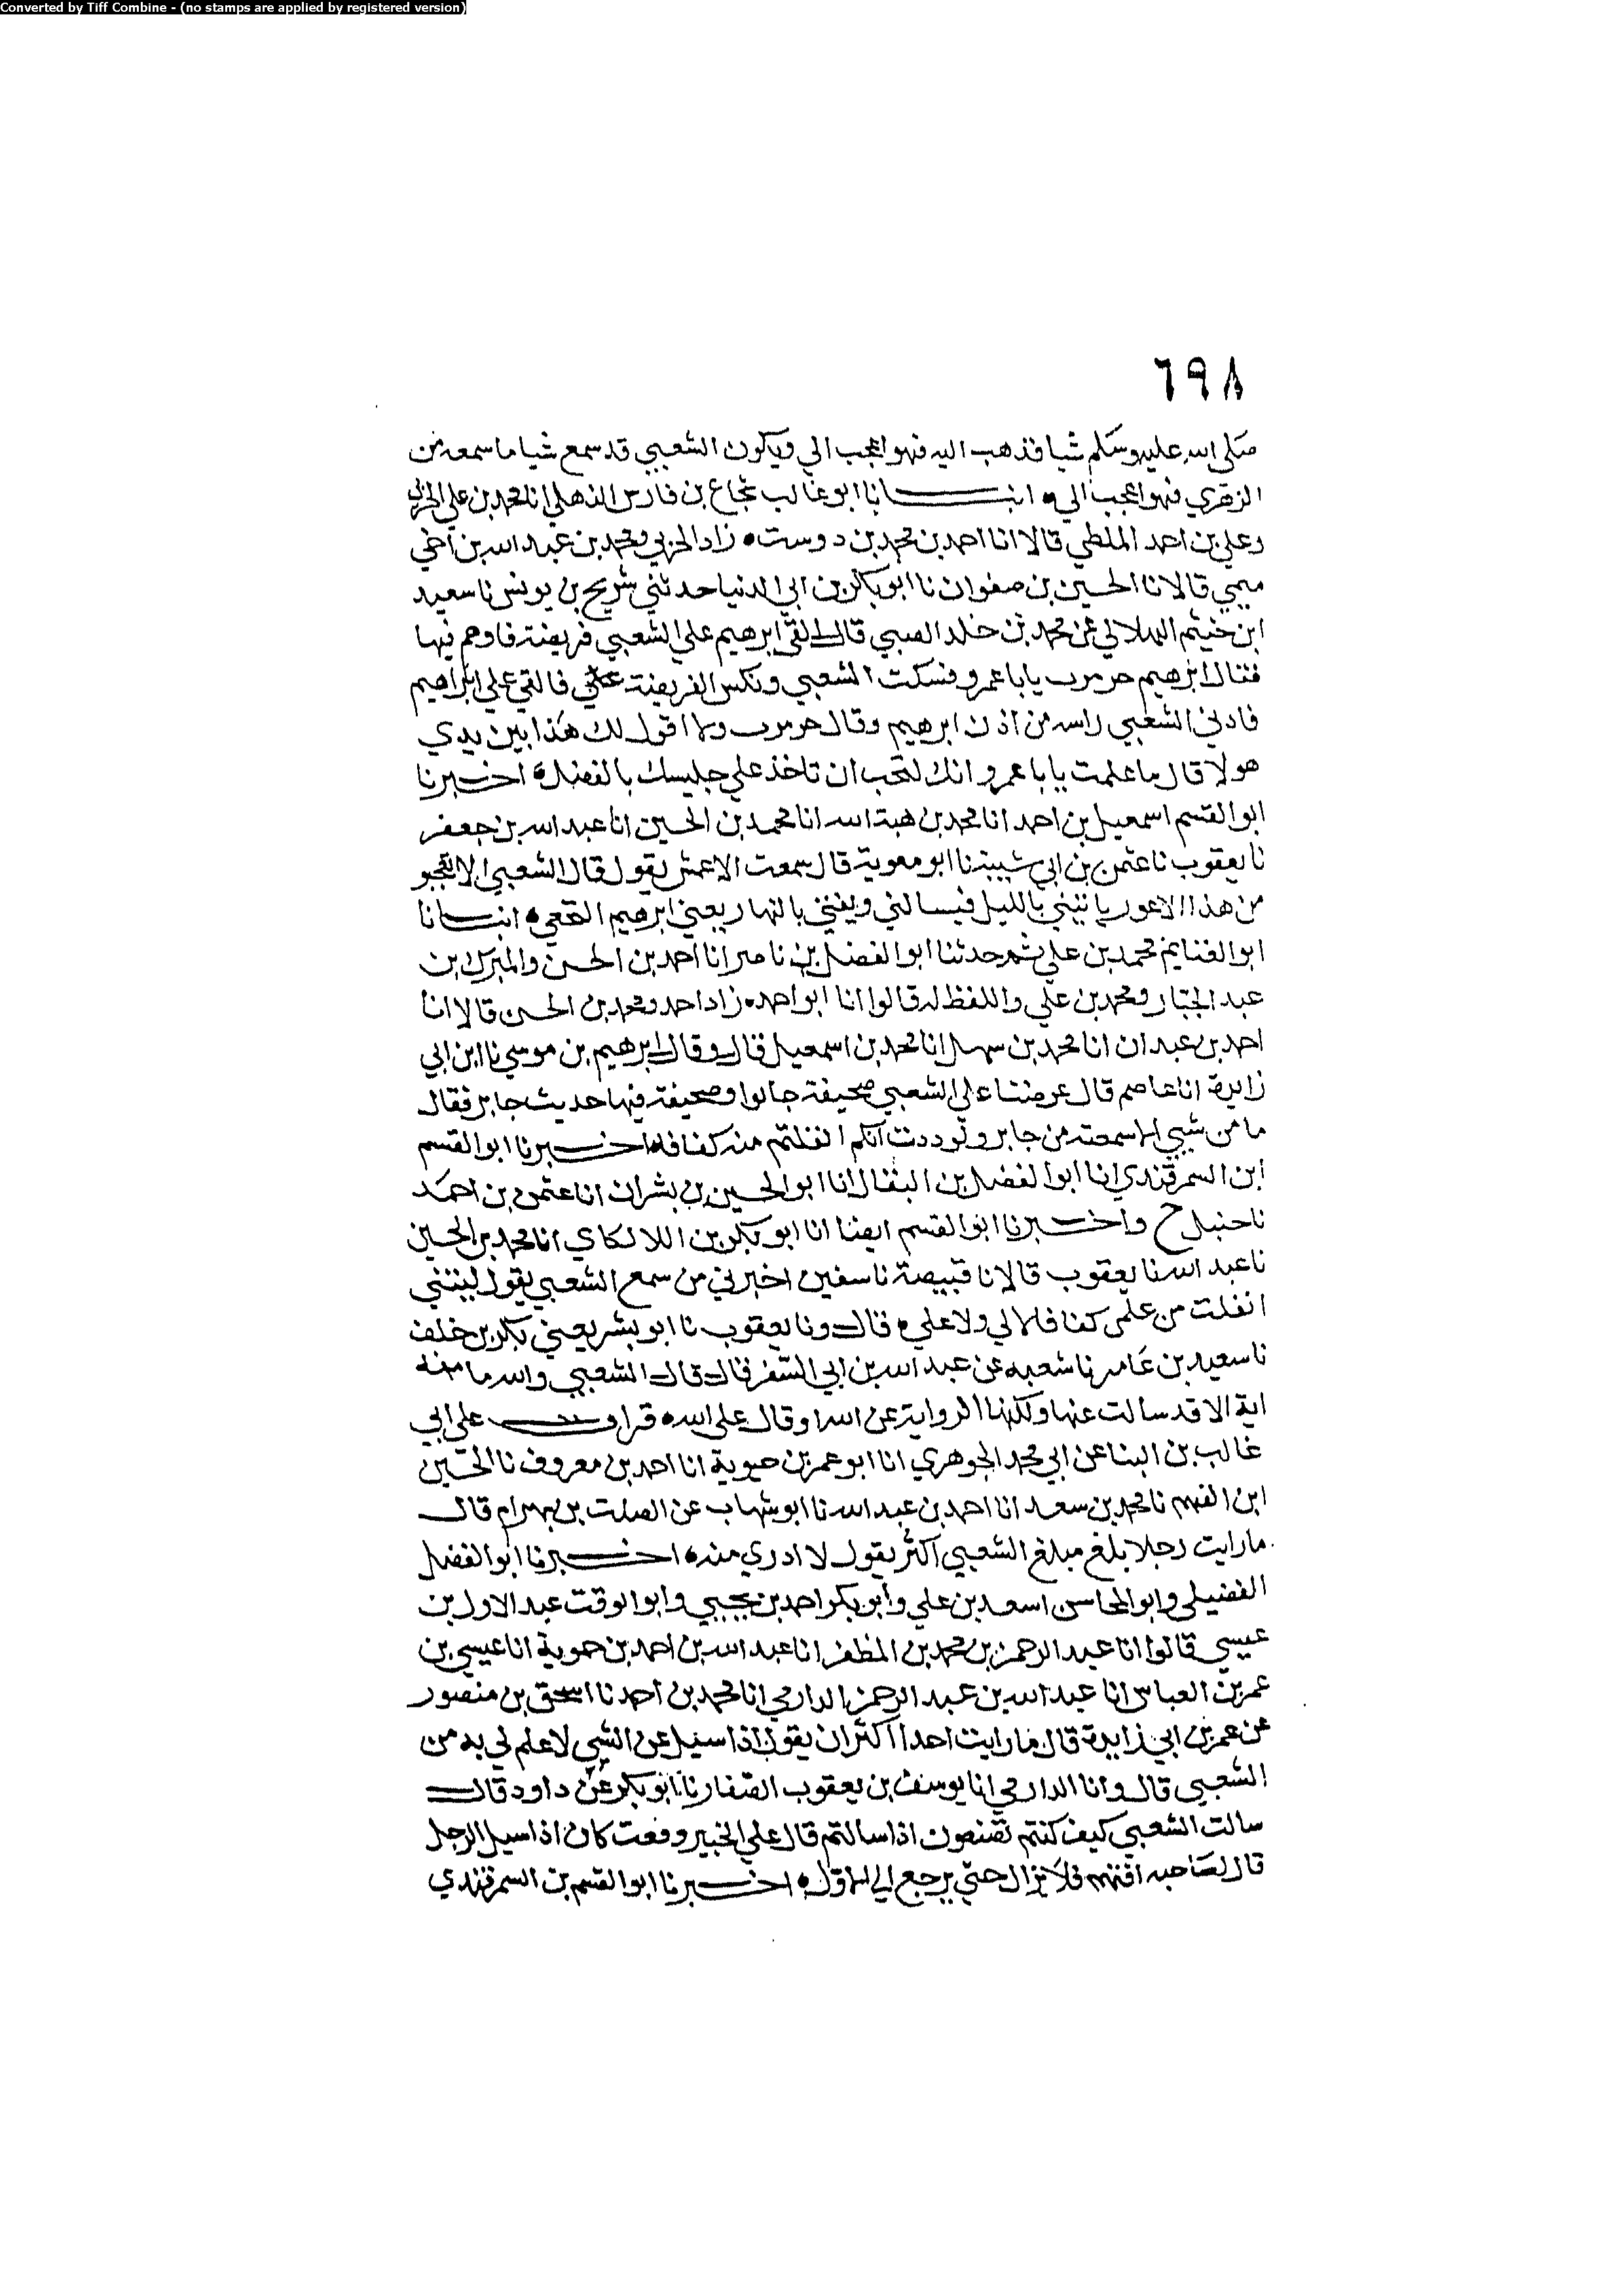 Converted by Tiff Combine - (no stamps are applied by registered version)
٦٩٨
صلى الله عليه وسلم شيا فذهب اليه فهو اعجب الي ويكون الشعبي قد سمع شيا ما سمعه من
الزهري فهو اعجب الي ه انبـــانا ابو غالب شجاع بن فارس الذهلي انا محمد بن علي الحربي
وعلي بن احمد الملطي قالا انا احمد بن محمد بن دوست ه زاد الحربي ومحمد بن عبد الله بن اخي
ميمي قالا نا الحسين بن صفوان نا ابو بكر بن ابي الدنيا حدثني شريح بن يونس نا سعيد
ابن خثيم الهلالي عن محمد بن خلد الضبي قال القى ابرهيم علي الشعبي فريضة فاوهم فيها
فقال ابرهيم يا با عمرو فسكت الشعبي ونكس الفريضة فالقى علي ابراهيم
فادني الشعبي راسه من اذن ابرهيم وقال ولا اقول لك هذا بين يدي
هولا قال ما علمت يا با عمرو انك لتحب ان تاخذ علي جليسك بالفضل ه اخـــبرنا
ابو القسم اسمعيل بن احمد انا محمد بن هبة الله انا محمد بن الحسين انا عبد الله بن جعفر
نا يعقوب نا عثمن بن ابي شيبة نا ابو معوية قال سمعت الاعمش يقول قال الشعبي الا تعجبو
من هذا الاعور ياتيني بالليل فيسالني ويفتي بالنهار يعني ابرهيم النخعي ه انبـــانا
ابو الغنايم محمد بن علي ثم حدثنا ابو الفضل بن ناصر انا احمد بن الحسن والمبرك بن
عبد الجبار ومحمد بن علي واللفظ له قالوا انا ابو احمد ه زاد احمد ومحمد بن الحسن قالا انا
احمد بن عبدان انا محمد بن سهل انا محمد بن اسمعيل قال وقال ابرهيم بن موسي نا ابن ابي
زايدة انا عاصم قال عرضنا علي الشعبي صحيفة جالوا وصحيفة فيها حديث جابر فقال
ما من شيي الا سمعته من جابر ولوددت انكم انفلتم منه كفافا ه اخـــبرنا ابو القسم
ابن السمرقندي انا ابو الفضل بن البقال انا ابو الحسين بن بشران انا عثمن بن احمد
نا حنبل ح واخـــبرنا ابو القسم ايضا انا ابو بكر بن اللالكاي انا محمد بن الحسين
نا عبد الله نا يعقوب قالا نا قبيصة نا سفين اخبرني من سمع الشعبي يقول ليتني
انفلت من علمي كفافا لا لي ولا علي ه قال ونا يعقوب نا ابو بشر يعني بكر بن خلف
نا سعيد بن عامر نا شعبه عن عبد الله بن ابي السفر قال قال الشعبي والله ما منه
اية الا قد سالت عنها ولكنها الرواية عن الله او قال علي الله ه قرات علي ابي
غالب بن البنا عن ابي محمد الجوهري انا ابو عمر بن حيوية انا احمد بن معروف نا الحسين
ابن الفهم نا محمد بن سعد انا احمد بن عبد الله نا ابو شهاب عن الصلت بن بهرام قال
ما رايت رجلا بلغ مبلغ الشعبي اكثر يقول لا ادري منه ه اخـــبرنا ابو الفضل
الفضيلي وابو المحاسن اسعد بن علي وابو بكر احمد بن يحيي وابو الوقت عبد الاول بن
عيسي قالوا انا عبد الرحمن بن محمد بن المظفر انا عبد الله بن احمد بن حموية انا عيسي بن
عمر بن العباس انا عبد الله بن عبد الرحمن الدارمي انا محمد بن احمد نا اسحق بن منصور
عن عمر بن ابي زايدة قال ما رايت احدا اكثر ان يقول اذا سئيل عن الشي لا علم لي به من
الشعبي قال وانا الدارمي انا يوسف بن يعقوب الصفار نا ابو بكر عن داود قال
سالت الشعبي كيف كنتم تصنعون اذا سالتم قال علي الخبير وقعت كان اذا سيل الرجل
قال لصاحبه افتهم فلا يزال حتي يرجع الي الاول ه اخـــبرنا ابو القسم بن السمرقندي